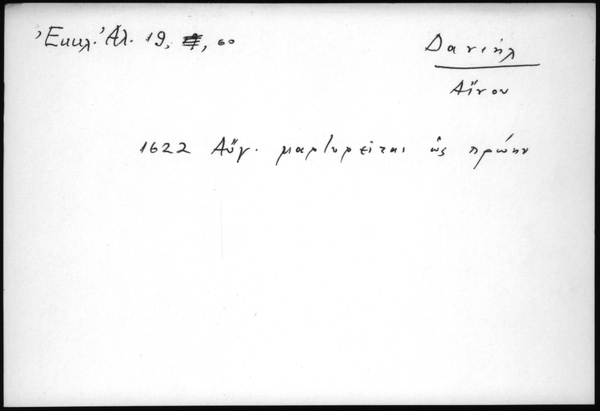 Ἐκκλ. Ἀλ. 19, 60
Δανιήλ
Αἴνου
1622 Αὔγ. μαρτυρεῖται ὡς πρώην